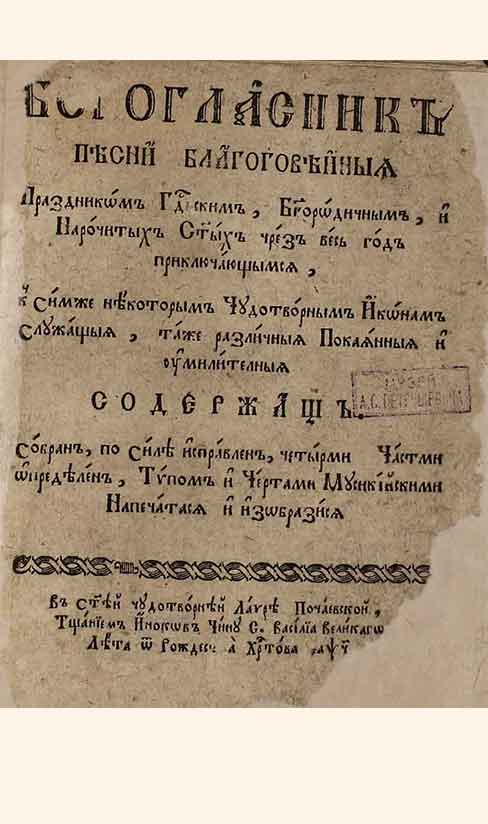 БОГОГЛА́СНИКЪ
ПѢСНИ̑ БЛАГОГОВѢ́ЙНЫЯ
Праздникѡ́мъ Гд҃скимъ, Бг҃оро́дичнымъ, и҆
Наро́читыхъ Ст҃ы́хъ чре́зъ ве́сь го́дъ
приключа́ющымся,
къ си̑мже нѣ́которымъ Чꙋдотво́рнымъ И҆кѡ́намъ
слꙋжа́щыя, та́же разли́чныя Покаѧ́нныя и҆
ᲂу҆мили́телныя
СОДЕРЖА́ЩЪ.
МУЗЕЙ
А.С. ПЕТРУШЕВИЧА
Со́бранъ, по си́лѣ и҆спра́вленъ, четы́рми Ча́стми
ѡ҆предѣ́ленъ, Тѵ́помъ и҆ Че́ртами Мꙋсикі́йскими
Напеча́тася и҆ и҆зѡбрази́ся
Въ ст҃ѣ́й чꙋдотво́рнѣй Ла́ѵрѣ Поча́евской,
Тща́нїемъ И҆но́кѡвъ Чи́нꙋ С. Васі́лїа Вели́кагѡ
Лѣ́та ѿ Рождес а̀ Хрⷭ҇то́ва